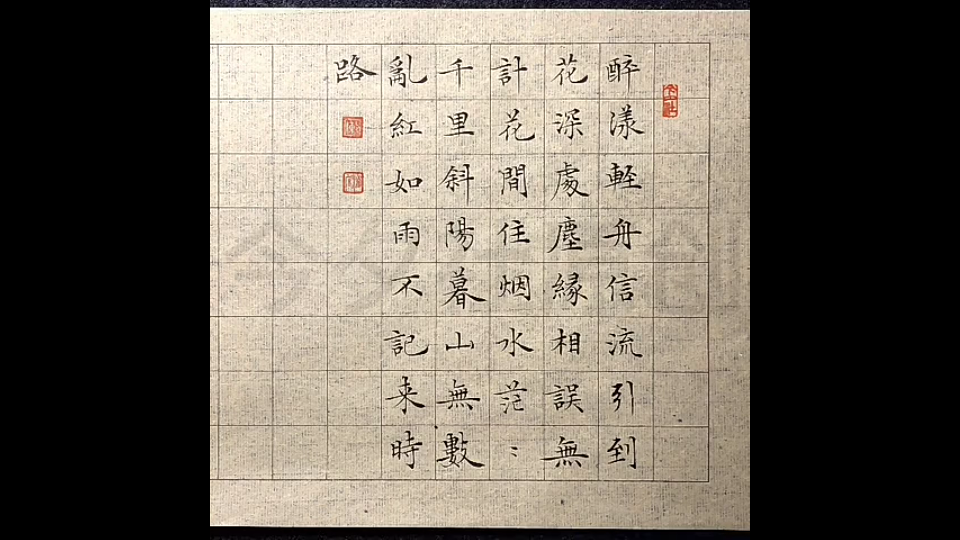 醉漾軽舟信流引到
花深處塵縁相誤無
計花間住烟水茫：
千里斜陽暮山無數
亂紅如雨不記来時
路